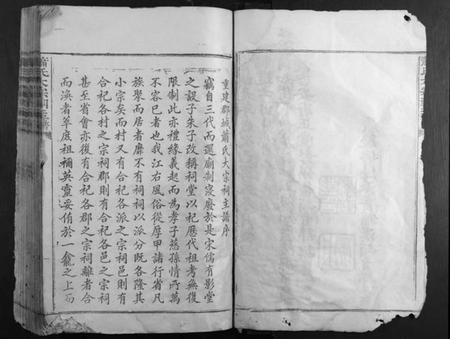 重建郡城蕭氏大宗祠主譜序
竊自三代而還廟制寖廢於是宋儒有影堂
之設子朱子改稱祠堂以祀歷代祖考無復
限制此亦禮緣義起而為孝子慈孫情所萬
不容已者也我江右風俗從厚甲諸行省凡
族聚而居者靡不有祠祠以派分既各隆其
小宗矣而村又有合祀各派之宗祠邑則有
合祀各村之宗祠郡則有合祀各邑之宗祠
甚至省會亦復有合祀各郡之宗祠離者合
而渙者萃庶祖禰英靈妥侑於一龕之上而